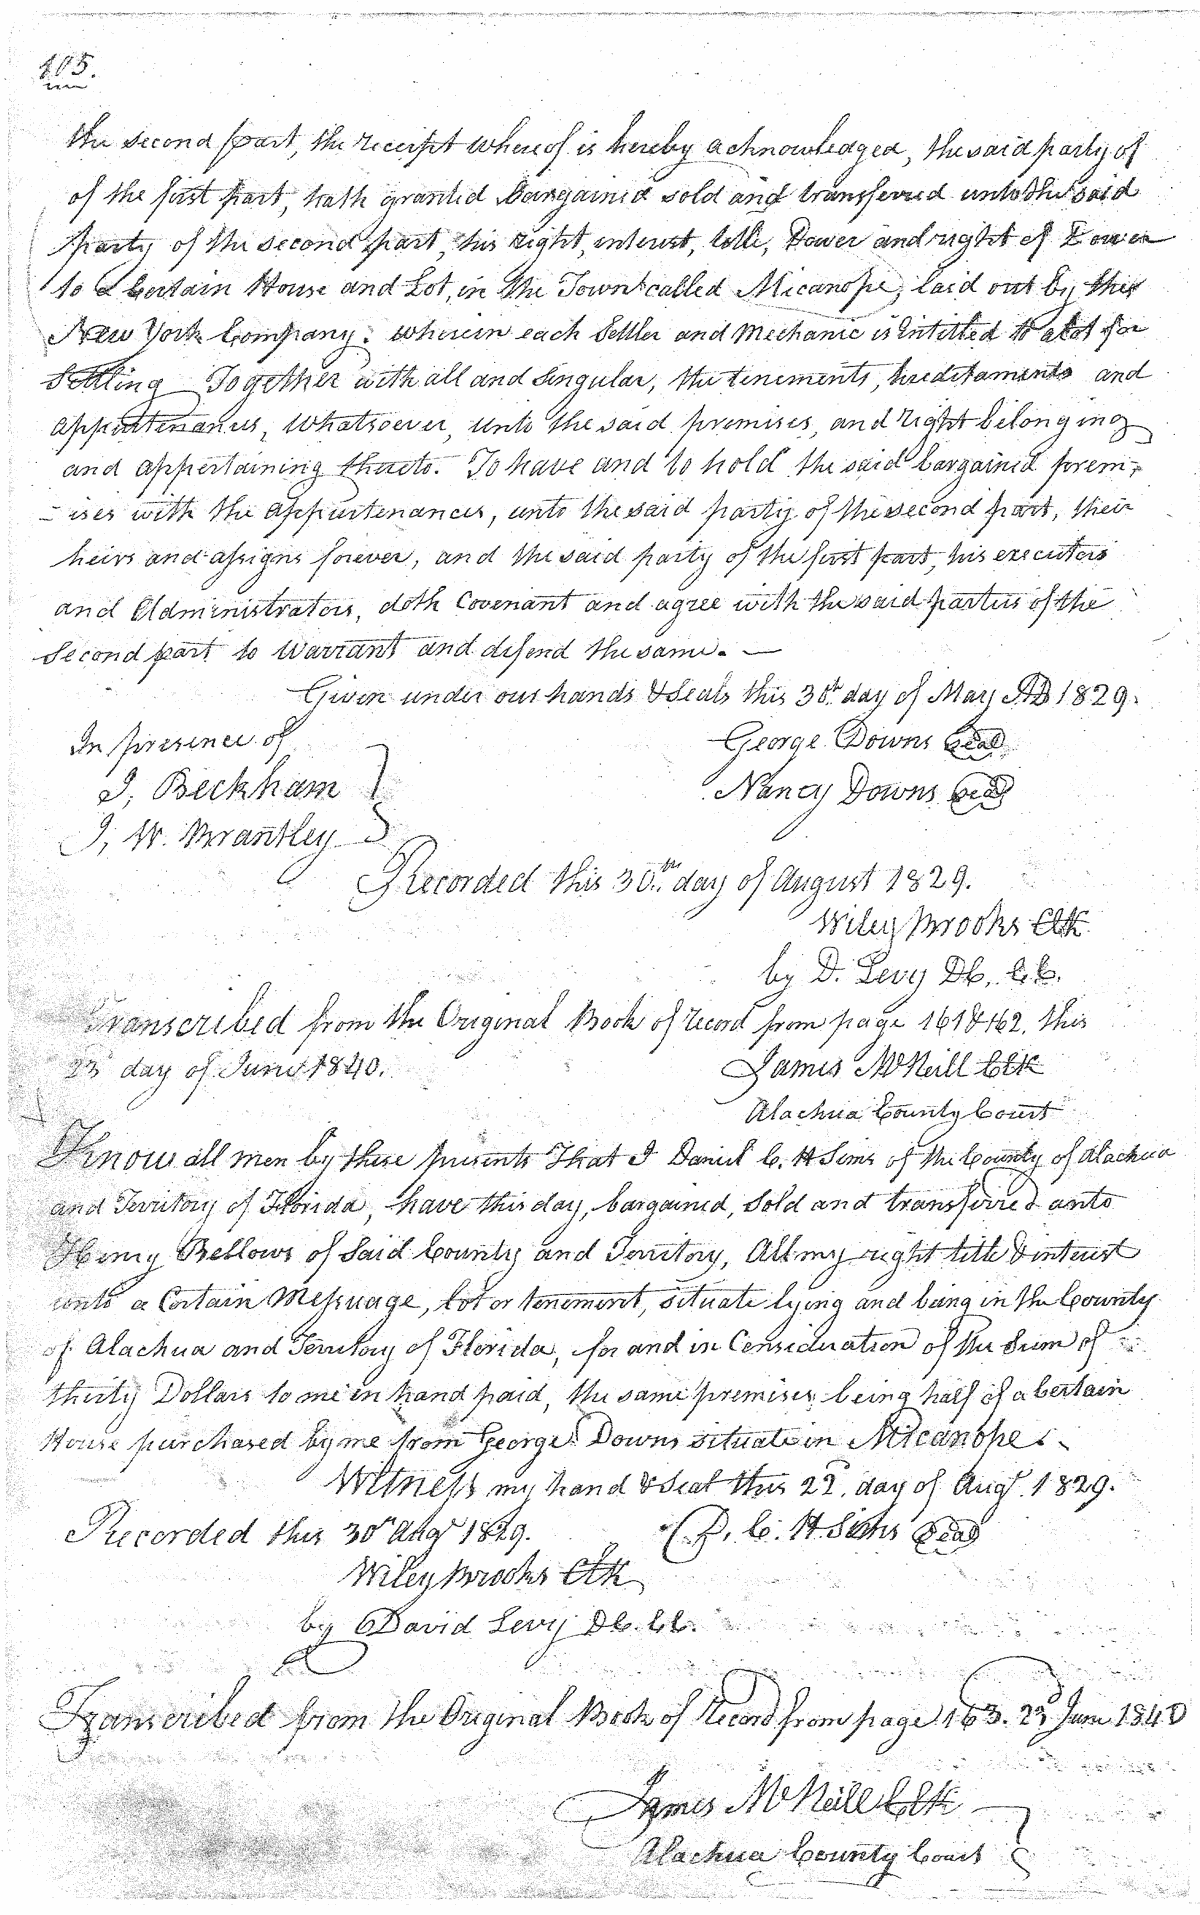 105.
the second part, the receipt whereof is hereby acknowledged, the said party of
of the first part, hath granted bargained sold and transferred unto the said
party of the second part, his right, interest, title, Dower and right of Dower
to a Certain House and Lot, in the Town called Micanope, laid out by the
New York Company: wherein each Settler and Mechanic is Entitled to a lot for
Settling Together with all and singular, the tenements, hereditaments and
appurtenances, whatsoever, unto the said premises, and right belonging
and appertaining thereto. To have and to hold the said bargained prem-
-ises with the appurtenances, unto the said party of the second part, their
heirs and assigns forever, and the said party of the first part, his executors
and Administrators, doth Covenant and agree with the said parties of the
Second part to Warrant and defend the same. —
Given under our hands & Seals this 30th day of May AD 1829.
In presence of
George Downs Seal
J. Beckham
Nancy Downs Seal
J. W. Brantley
Recorded this 30th day of August 1829.
Wiley Brooks Clk
by D. Levy DC. C.C.
Transcribed from the Original Book of record from page 161 & 162. this
23 day of June 1840.
James McNeill Clk
Alachua County Court
Know all men by these presents That I Daniel C. H Sims of the County of Alachua
and Territory of Florida, have this day, bargained, Sold and transferred unto
Henry Bellows of Said County and Territory, All my right title & interest
unto a Certain Messuage, lot or tenement, situate lying and being in the County
of Alachua and Territory of Florida, for and in Consideration of the Sum of
thirty Dollars to me in hand paid, the same premises being half of a Certain
House purchased by me from George Downs situate in Micanope.
Witness my hand & Seal this 22d. day of Augt. 1829.
Recorded this 30th Augt 1829.
D. C. H Sims Seal
Wiley Brooks Clk
by David Levy DC. CC.
Transcribed from the Original Book of Record from page 163. 23 June 1840
James McNeill Clk
Alachua County Court